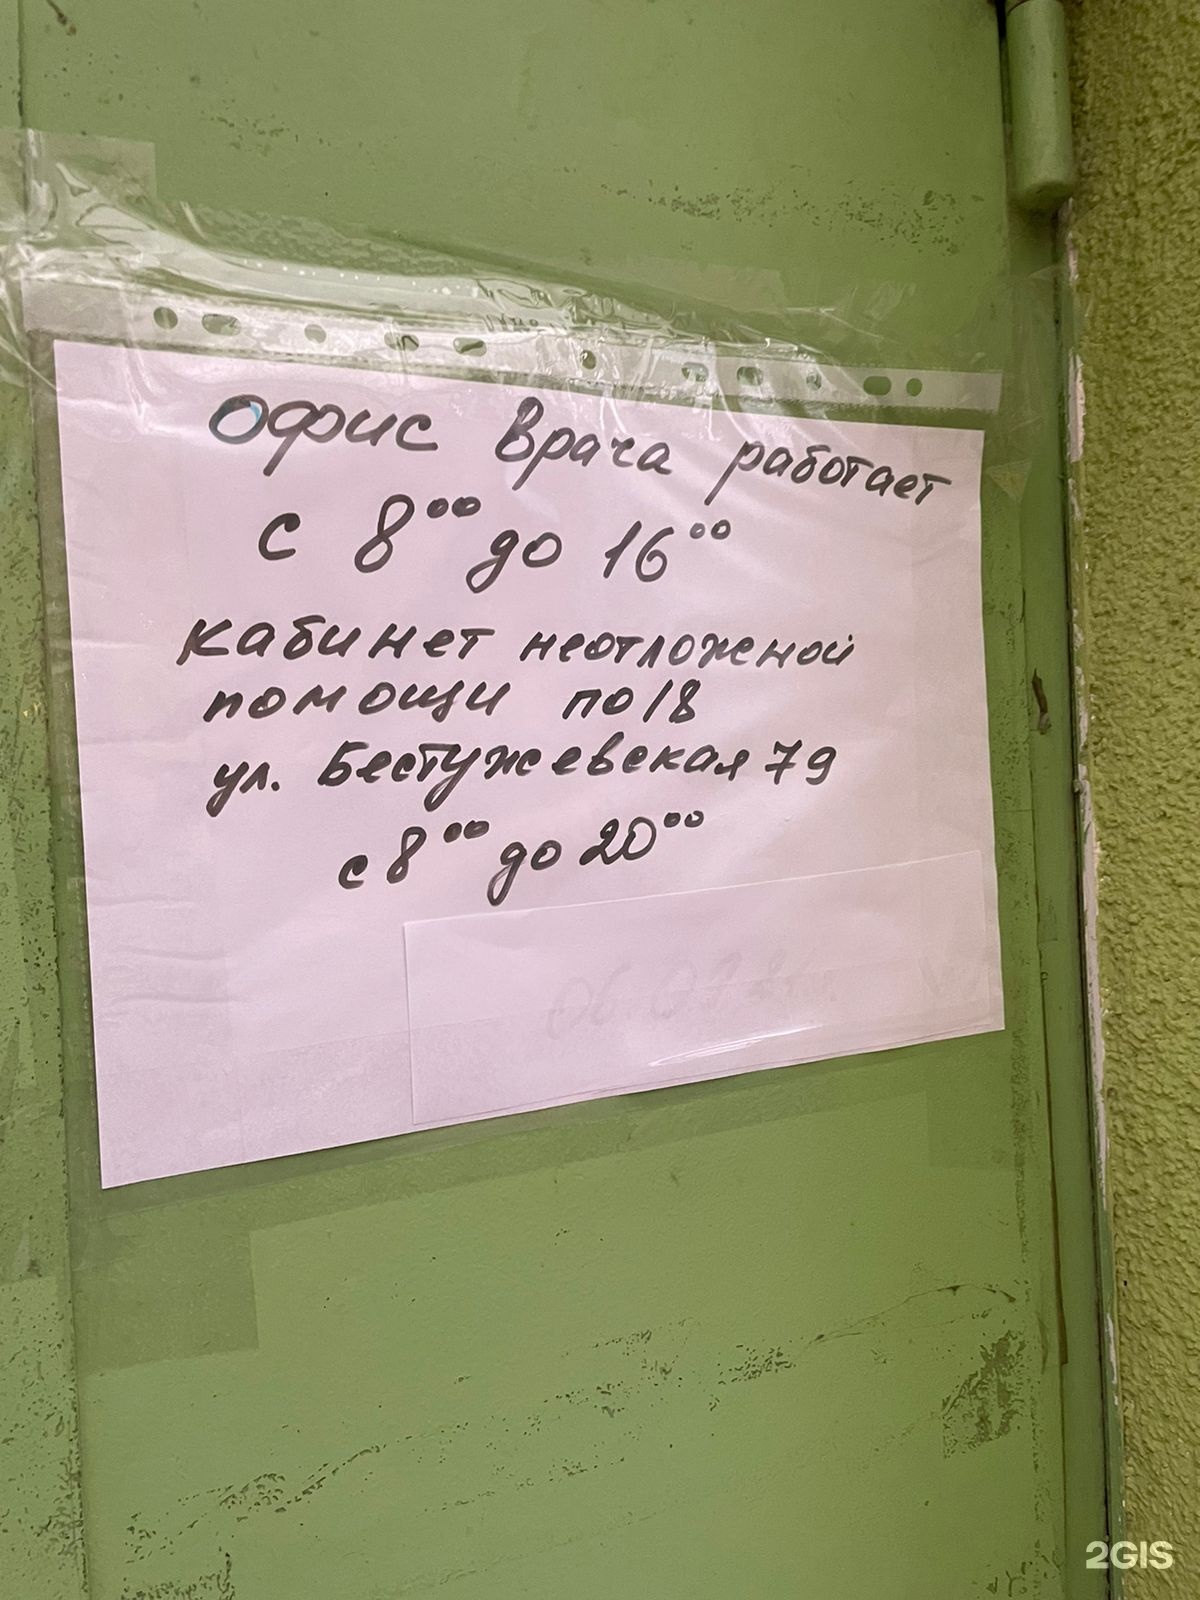 офис врача работает
с 8⁰⁰ до 16⁰⁰
кабинет неотложеной
помощи по18
ул. Бестужевская 79
с 8⁰⁰ до 20⁰⁰
2GIS